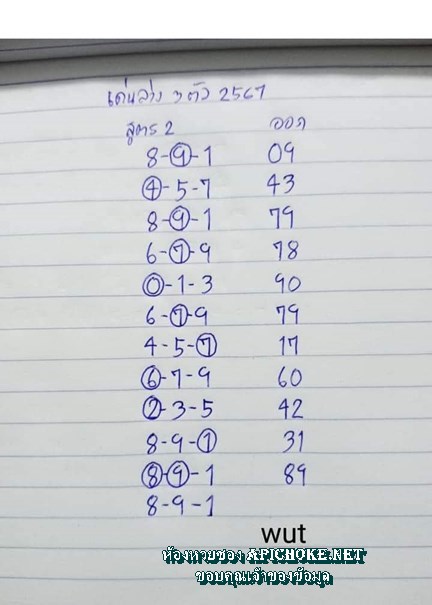 เด่นล่าง 3 ตัว 2567
สูตร 2 ออก
8-9-1 09
4-5-7 43
8-9-1 79
6-7-9 78
0-1-3 90
6-7-9 79
4-5-7 17
6-7-9 60
2-3-5 42
8-9-1 31
8-9-1 89
8-9-1
wut
ห้องหวยซอง APICHOKE.NET
ขอบคุณเจ้าของข้อมูล